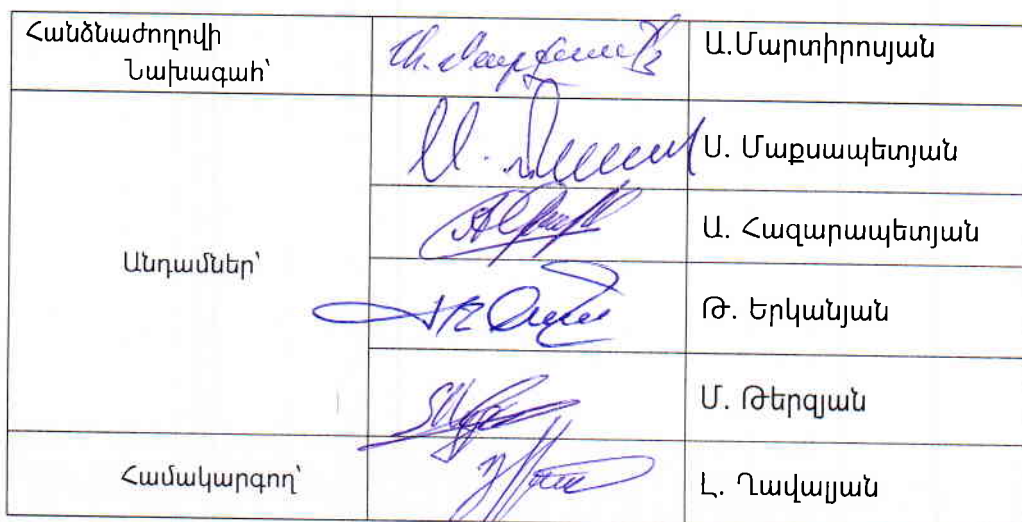 Հանձնաժողովի
Նախագահ՝
Ա.Մարտիրոսյան
Ս. Մաքսապետյան
Ա. Հազարապետյան
Անդամներ՝
Թ. Երկանյան
Մ. Թերզյան
Համակարգող՝
Լ. Ղավալյան